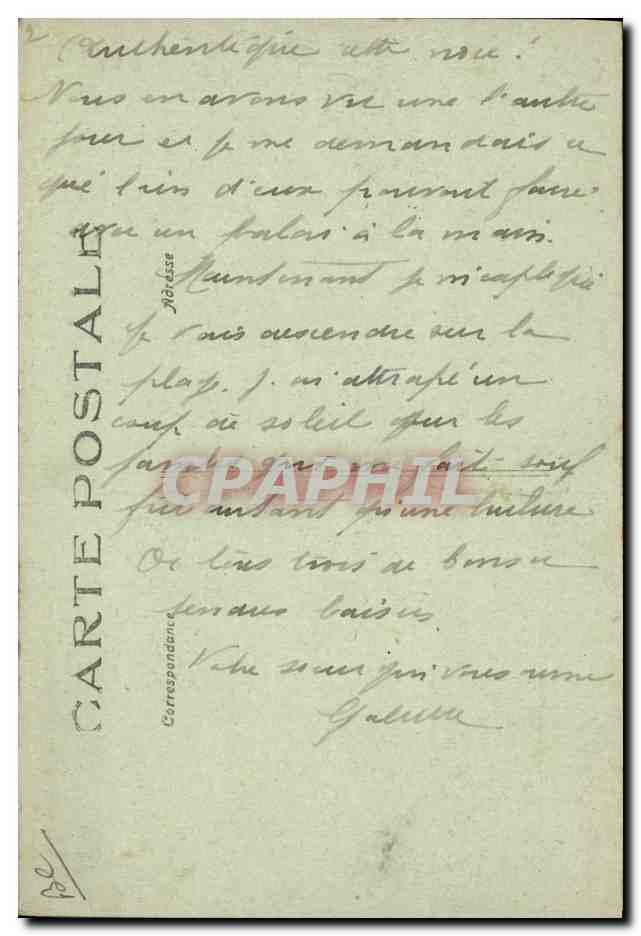 2
Authentique cette noce!
Nous en avons vu une l'autre
jour et je me demandais ce
que l'un d'eux pouvait faire
avec un balai à la main.
Maintenant je m'explique
Je vais descendre sur la
plage. J'ai attrapé un
coup de soleil sur les
jambes qui me fait souf
frir autant qu'une brûlure
De tous trois de bons et
tendres baisers
Votre soeur qui vous aime
CARTE POSTALE
Adresse
Correspondance
CPAPHIL